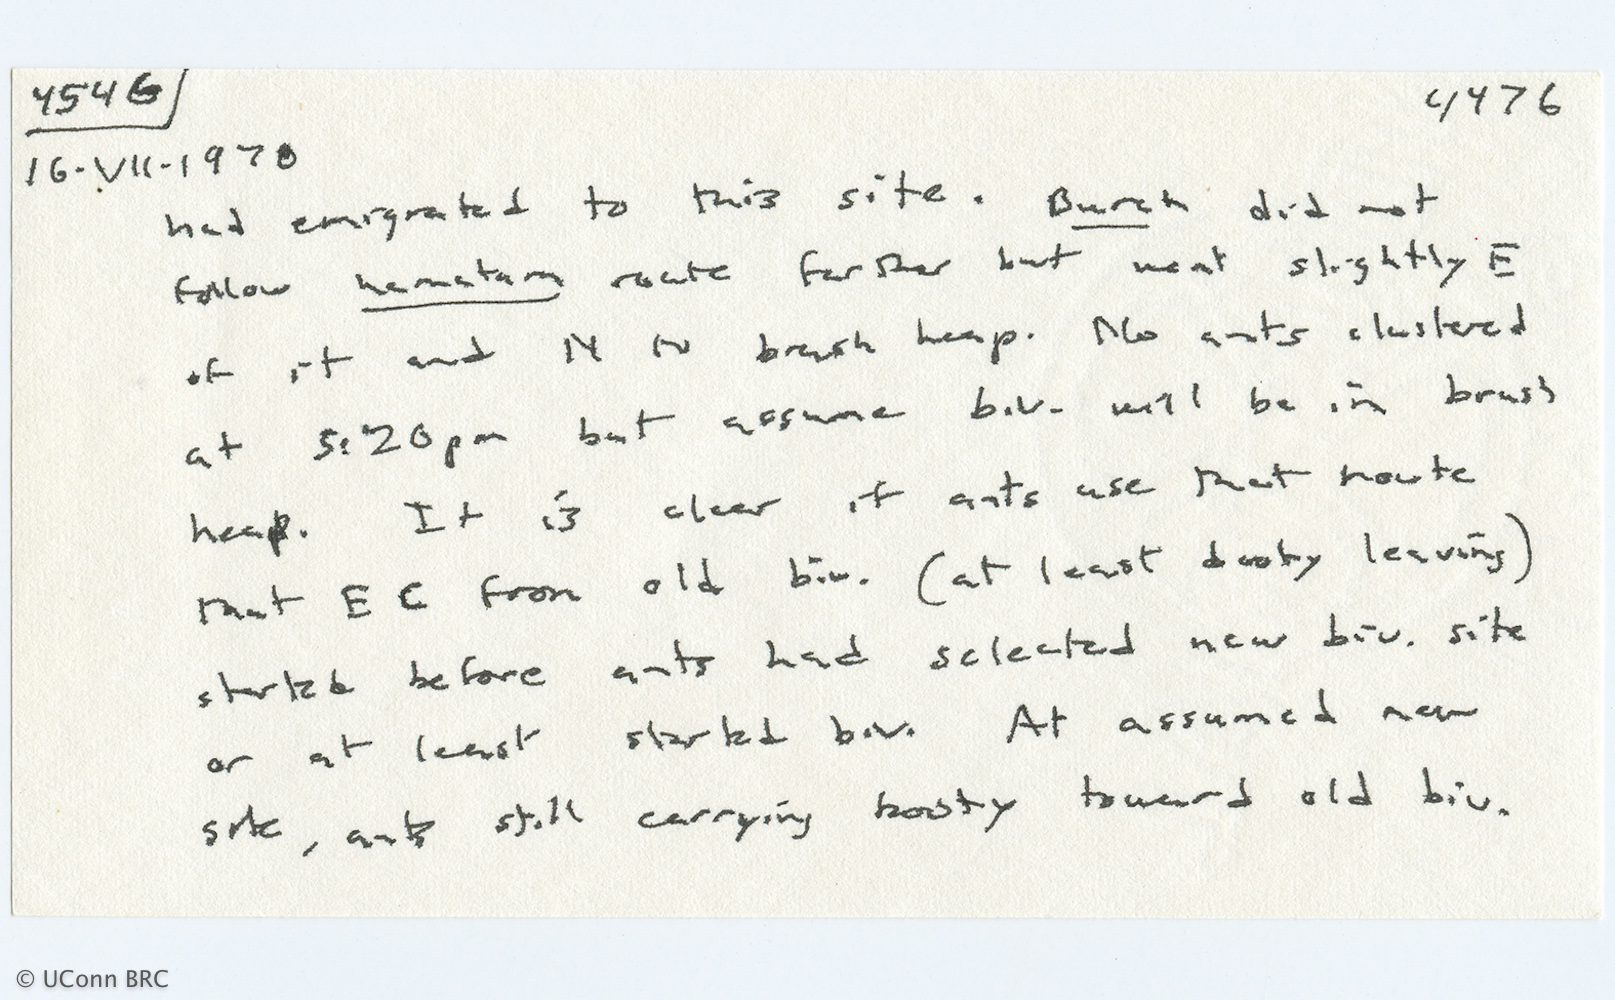 4546
4476
16-VII-1970
had emigrated to this site. Burch did not
follow hamatum route farther but went slightly E
of it and N to brush heap. No ants clustered
at 5:20pm but assume biv. will be in brush
heap. It is clear if ants use that route
that EC from old biv. (at least booty leaving)
started before ants had selected new biv. site
or at least started biv. At assumed new
site, ants still carrying booty toward old biv.
© UConn BRC